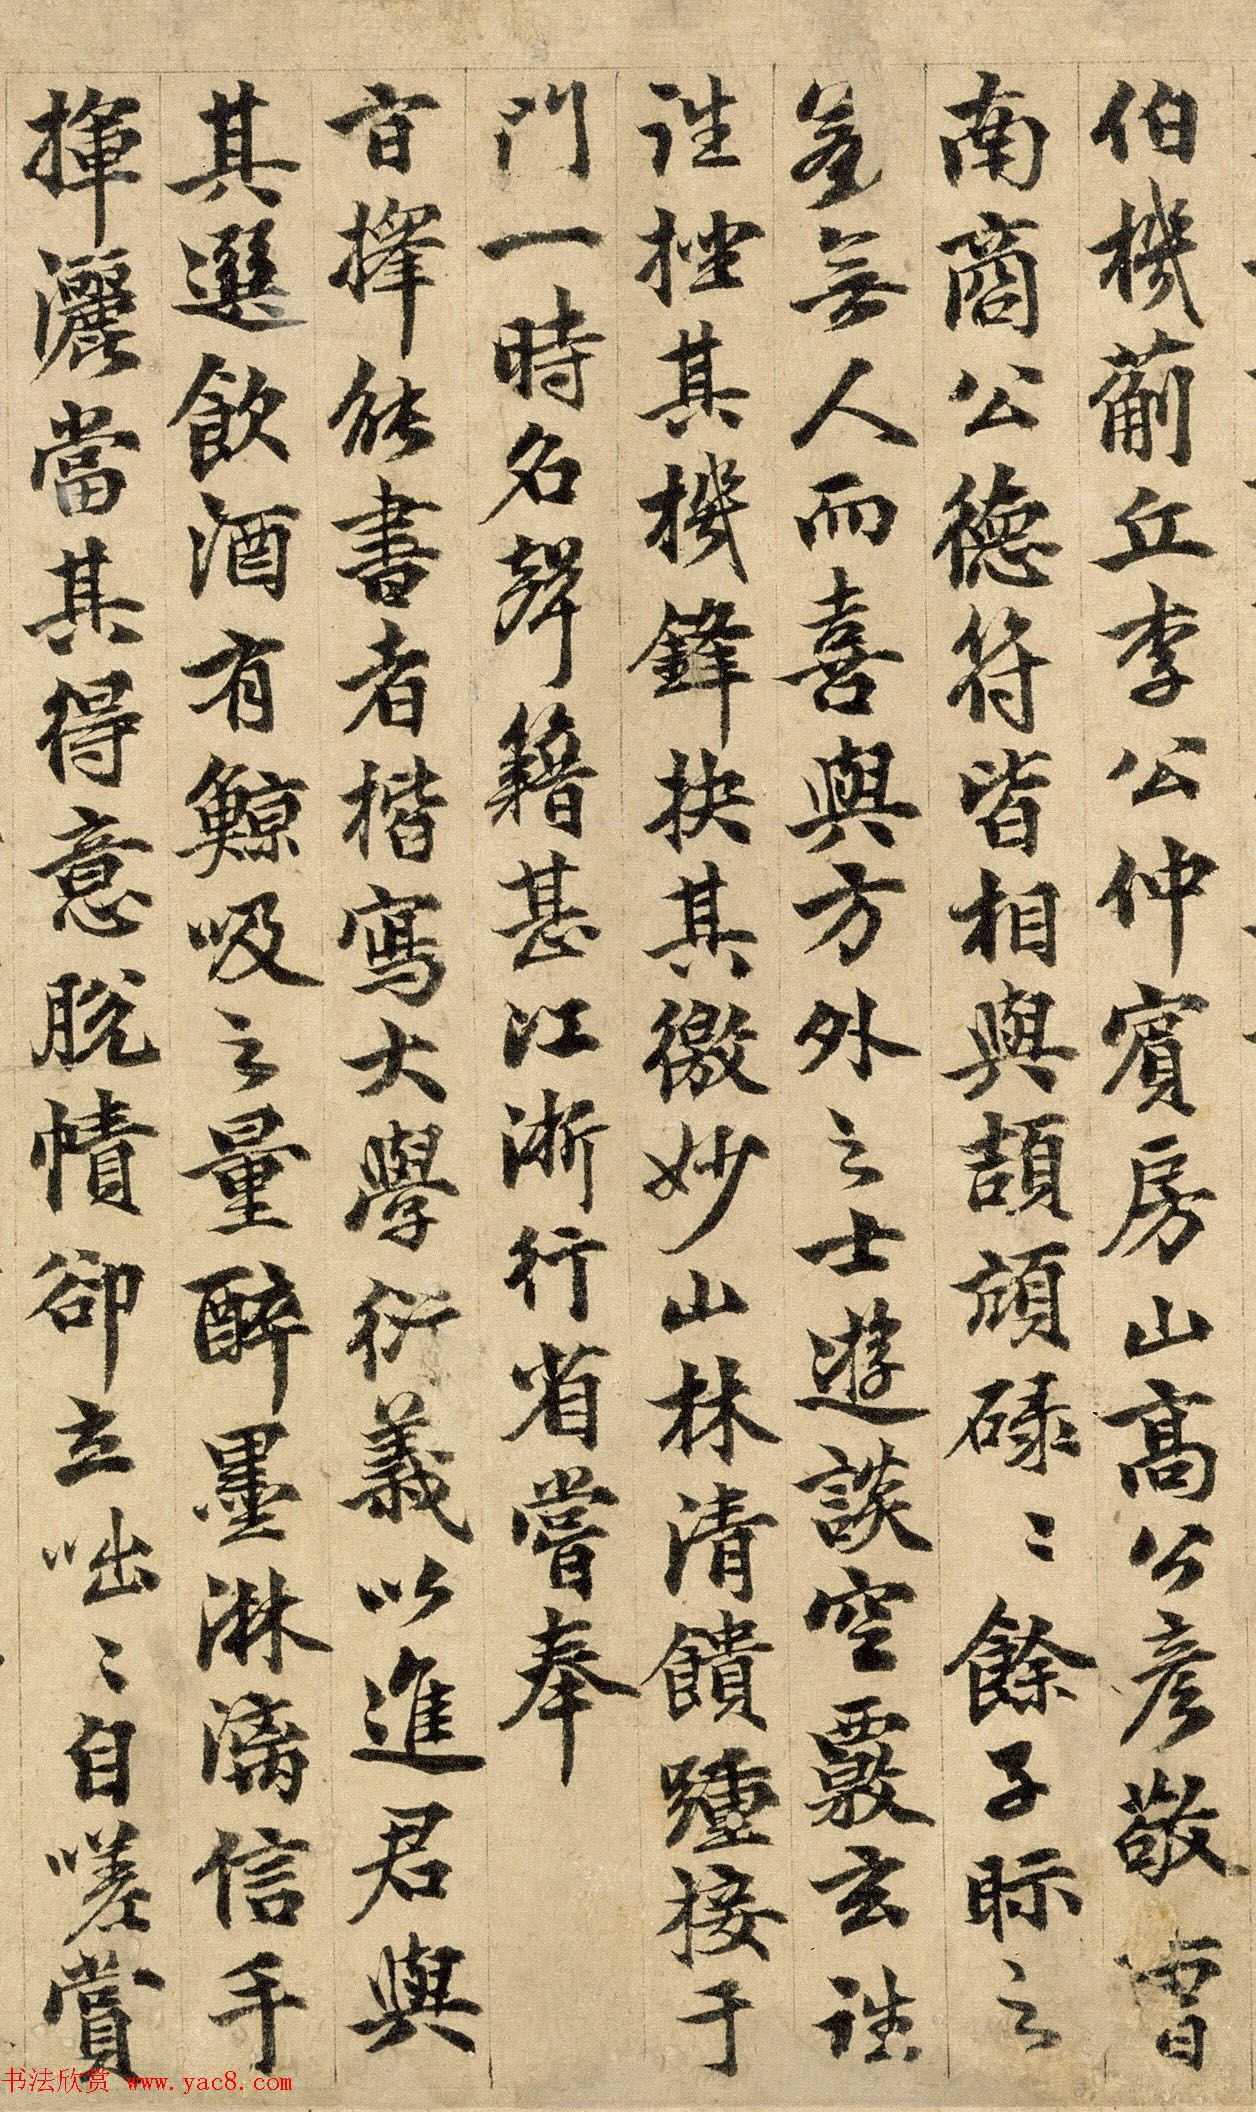 伯機薊丘李公仲賓房山高公彥敬曹
南商公德符皆相與頡頏碌〻餘子眎之
若無人而喜與方外之士遊談空覈玄詆
誰挫其機鋒抉其微妙山林清饋踵接于
門一時名聲籍甚江淛行省嘗奉
旨擇能書者楷寫大學衍義以進君與
其選飲酒有鯨吸之量醉墨淋漓信手
揮灑當其得意脫幘卻立咄〻自嗟賞
书法欣赏 www.yac8.com